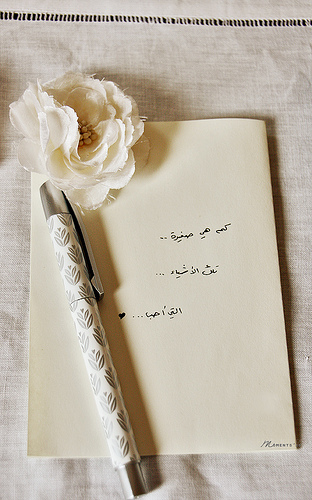 كم هي صغيرة ..
تلك الأشياء ...
التي أحبها ... ♥
MOMENTS